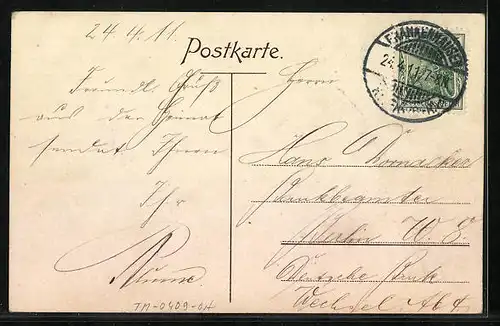 24.4.11.
Postkarte.
FRANKENHAUSEN
24.4.11. 7-8N.
Freundl. Gruß
aus der Heimat
sendet Ihnen
Ihr
Herrn
Hans
Bankbeamter
Berlin W. 8.
Deutsche Bank
Wechsel Abt
TM-0409-04